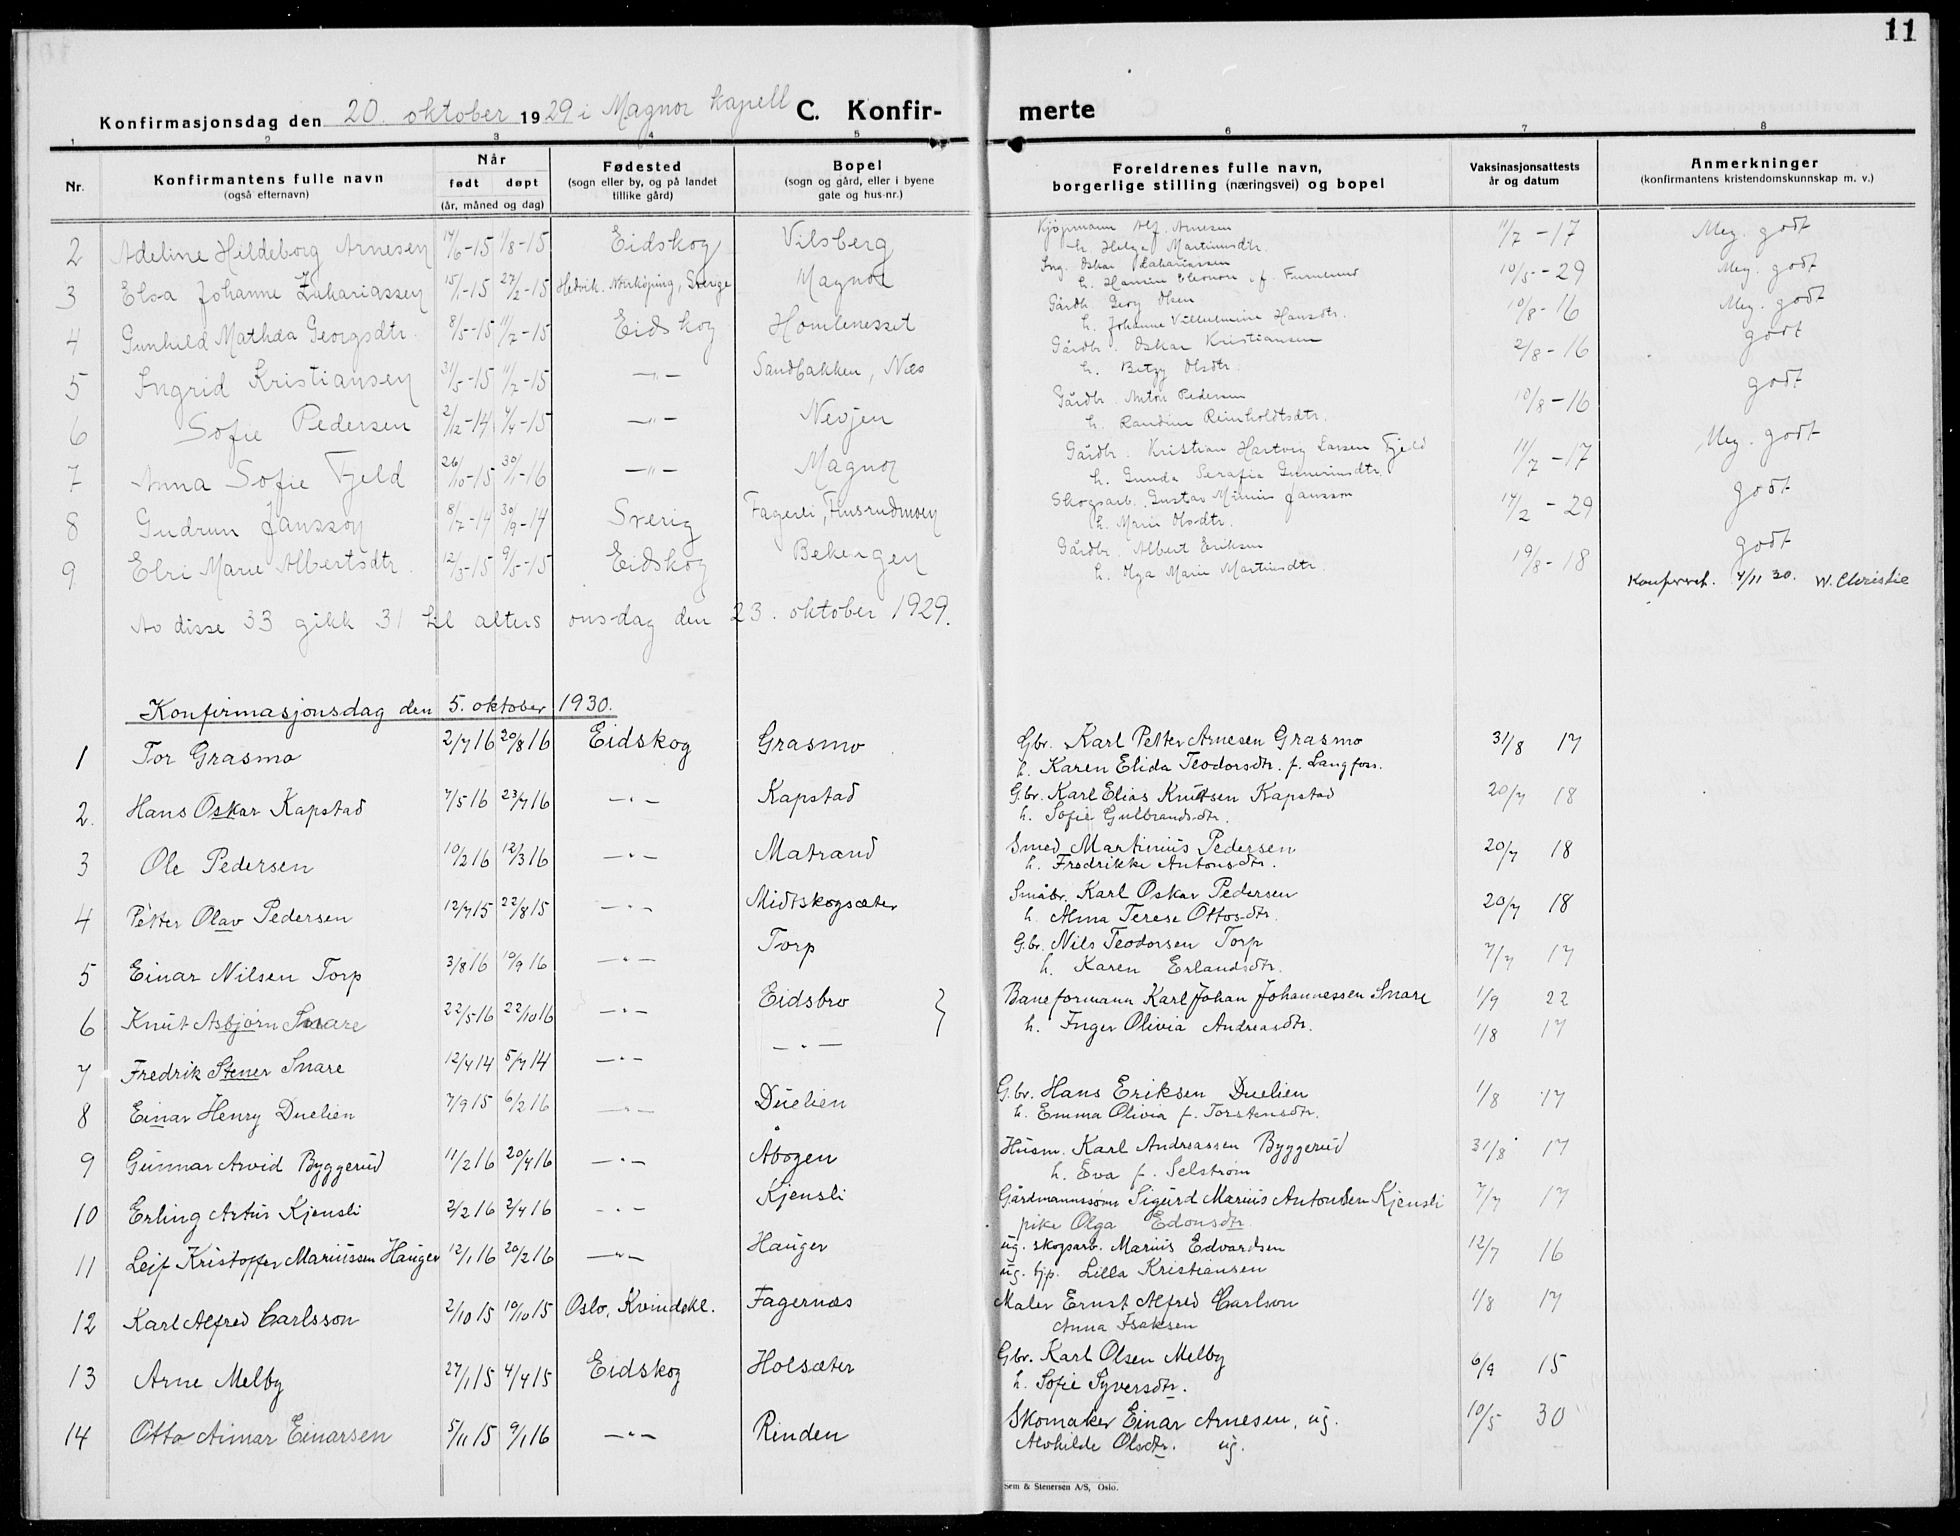 11
Konfirmasjonsdag den 20. oktober 1929 i Magnor kapell C. Konfirmerte
1 2 3 4 5 6 7 8
Nr. Konfirmantens fulle navn (også efternavn) Når født døpt (år, måned og dag) Fødested (sogn eller by, og på landet tillike gård) Bopel (sogn og gård, eller i byene gate og hus-nr.) Foreldrenes fulle navn, borgerlige stilling (næringsvei) og bopel Vaksinasjonsattests år og datum Anmerkninger (konfirmantens kristendomskunnskap m. v.)
2 Adeline Hildeborg Arnesen 14/6-15 1/8-15 Eidskog Vilsberg Kjøpmann Alf. Arnesen 11/7-17 Meg. godt
h. Helga Martinusdtr.
3 Elsa Johanne Zakariassen 15/1-15 27/2-15 Hedvik. Norrköping, Sverige Magnor Ing. Oskar Zakariassen 10/5-29 Meg. godt
h. Hansine Eleonore f.
4 Gunhild Mathea Georgsdtr. 8/5-15 11/7-15 Eidskog Homlenesset Gårdb. Georg Olsen 10/8-16 Meg. godt
h. Johanne Vilhelmine Hansdtr.
5 Ingrid Kristiansen 31/5-15 11/7-15 -"- Sandbakken, Næs Gårdbr. Oskar Kristiansen 2/8-16 godt
h. Betzy Olsdtr.
6 Sofie Pedersen 2/12-14 4/4-15 -"- Nevjen Gårdbr. Anton Pedersen 10/8-16 godt
h. Randine Reinholdtsdtr.
7 Anna Sofie Fjeld 26/10-15 30/1-16 -"- Magnor Gårdbr. Kristian Hartvig Larsen Fjeld 11/7-17 Meg. godt
h. Gunda Serafia Gunerinsdtr.
8 Gudrun Jansson 8/7-14 30/9-14 Sverig Fagerli, Finsrudmoen Skogsarb. Gustav Jansson 14/2-29 godt
h. Marie Olsdtr.
9 Elri Marie Albertsdtr. 12/3-15 9/5-15 Eidskog Bekengen Gårdbr. Albert Eriksen 19/8-18 godt
h. Olga Marie Martinsdtr.
Konfirert. 4/11 30. W. Christie
Av disse 33 gikk 31 til alters onsdag den 23. oktober 1929.
Konfirmasjonsdag den 5. oktober 1930.
1 Tor Grasmo 2/7 16 20/8 16 Eidskog Grasmo Gbr. Karl Petter Arnesen Grasmo 31/8 17
h. Karen Elida Teodorsdtr. f. Langfoss.
2. Hans Oskar Kapstad 7/5 16 23/7 16 -"- Kapstad G.br. Karl Elias Knutsen Kapstad 20/7 18
h. Sofie Gulbrandsdtr.
3 Ole Pedersen 10/2 16 12/3 16 -"- Matrand Smed Martinius Pedersen 20/7 18
h. Fredrikke Antonsdtr.
4 Petter Olav Pedersen 12/7 15 22/8 15 -"- Midtskogsæter Småbr. Karl Oskar Pedersen 20/7 18
h. Alma Terese Ottosdtr.
5 Einar Nilsen Torp 3/8 16 10/9 16 -"- Torp G.br. Nils Teodorsen Torp 7/7 17
h. Karen Erlandsdtr.
6 Knut Asbjørn Snare 22/5 16 22/10 16 -"- Eidsbro } Baneformann Karl Johan Johannessen Snare 1/9 22
h. Inger Olivia Andreasdtr. 1/8 17
7 Fredrik Stener Snare 12/4 14 5/7 14 -"- -"-
8 Einar Henry Duelien 7/9 15 6/2 16 -"- Duelien G.br. Hans Eriksen Duelien 1/8 17
h. Emma Olivia f. Torstensdtr.
9 Gunnar Arvid Byggerud 11/2 16 20/4 16 -"- Åbogen Husm. Karl Andreassen Byggerud 31/8 17
h. Eva f. Selstrøm
10 Erling Artur Kjensli 2/2 16 2/4 16 -"- Kjensli Gårdmannssønn Sigurd Marius Antonsen Kjensli 7/7 17
pike Olga Edonsdtr.
11 Leif Kristoffer Mariussen Hauger 12/1 16 20/2 16 -"- Hauger ug. skogsarb. Marius Edvardsen 12/7 16
ug. tjp. Lilla Kristiansen
12 Karl Alfred Carlsson 2/10 15 10/10 15 Oslo, Kvindekl. Fagernæs Maler Ernst Alfred Carlson 1/8 17
Anna Isaksen
13 Arne Melby 27/1 15 4/4 15 Eidskog Holsæter Gbr. Karl Olsen Melby 6/9 15
h. Sofie Syversdtr.
14 Otto Aimar Einarsen 5/11 15 9/1 16 -"- Rinden Skomaker Einar Arnesen, ug. 10/5 30
Alvhilde Olsdtr. ug.
Sem & Stenersen A/S, Oslo.